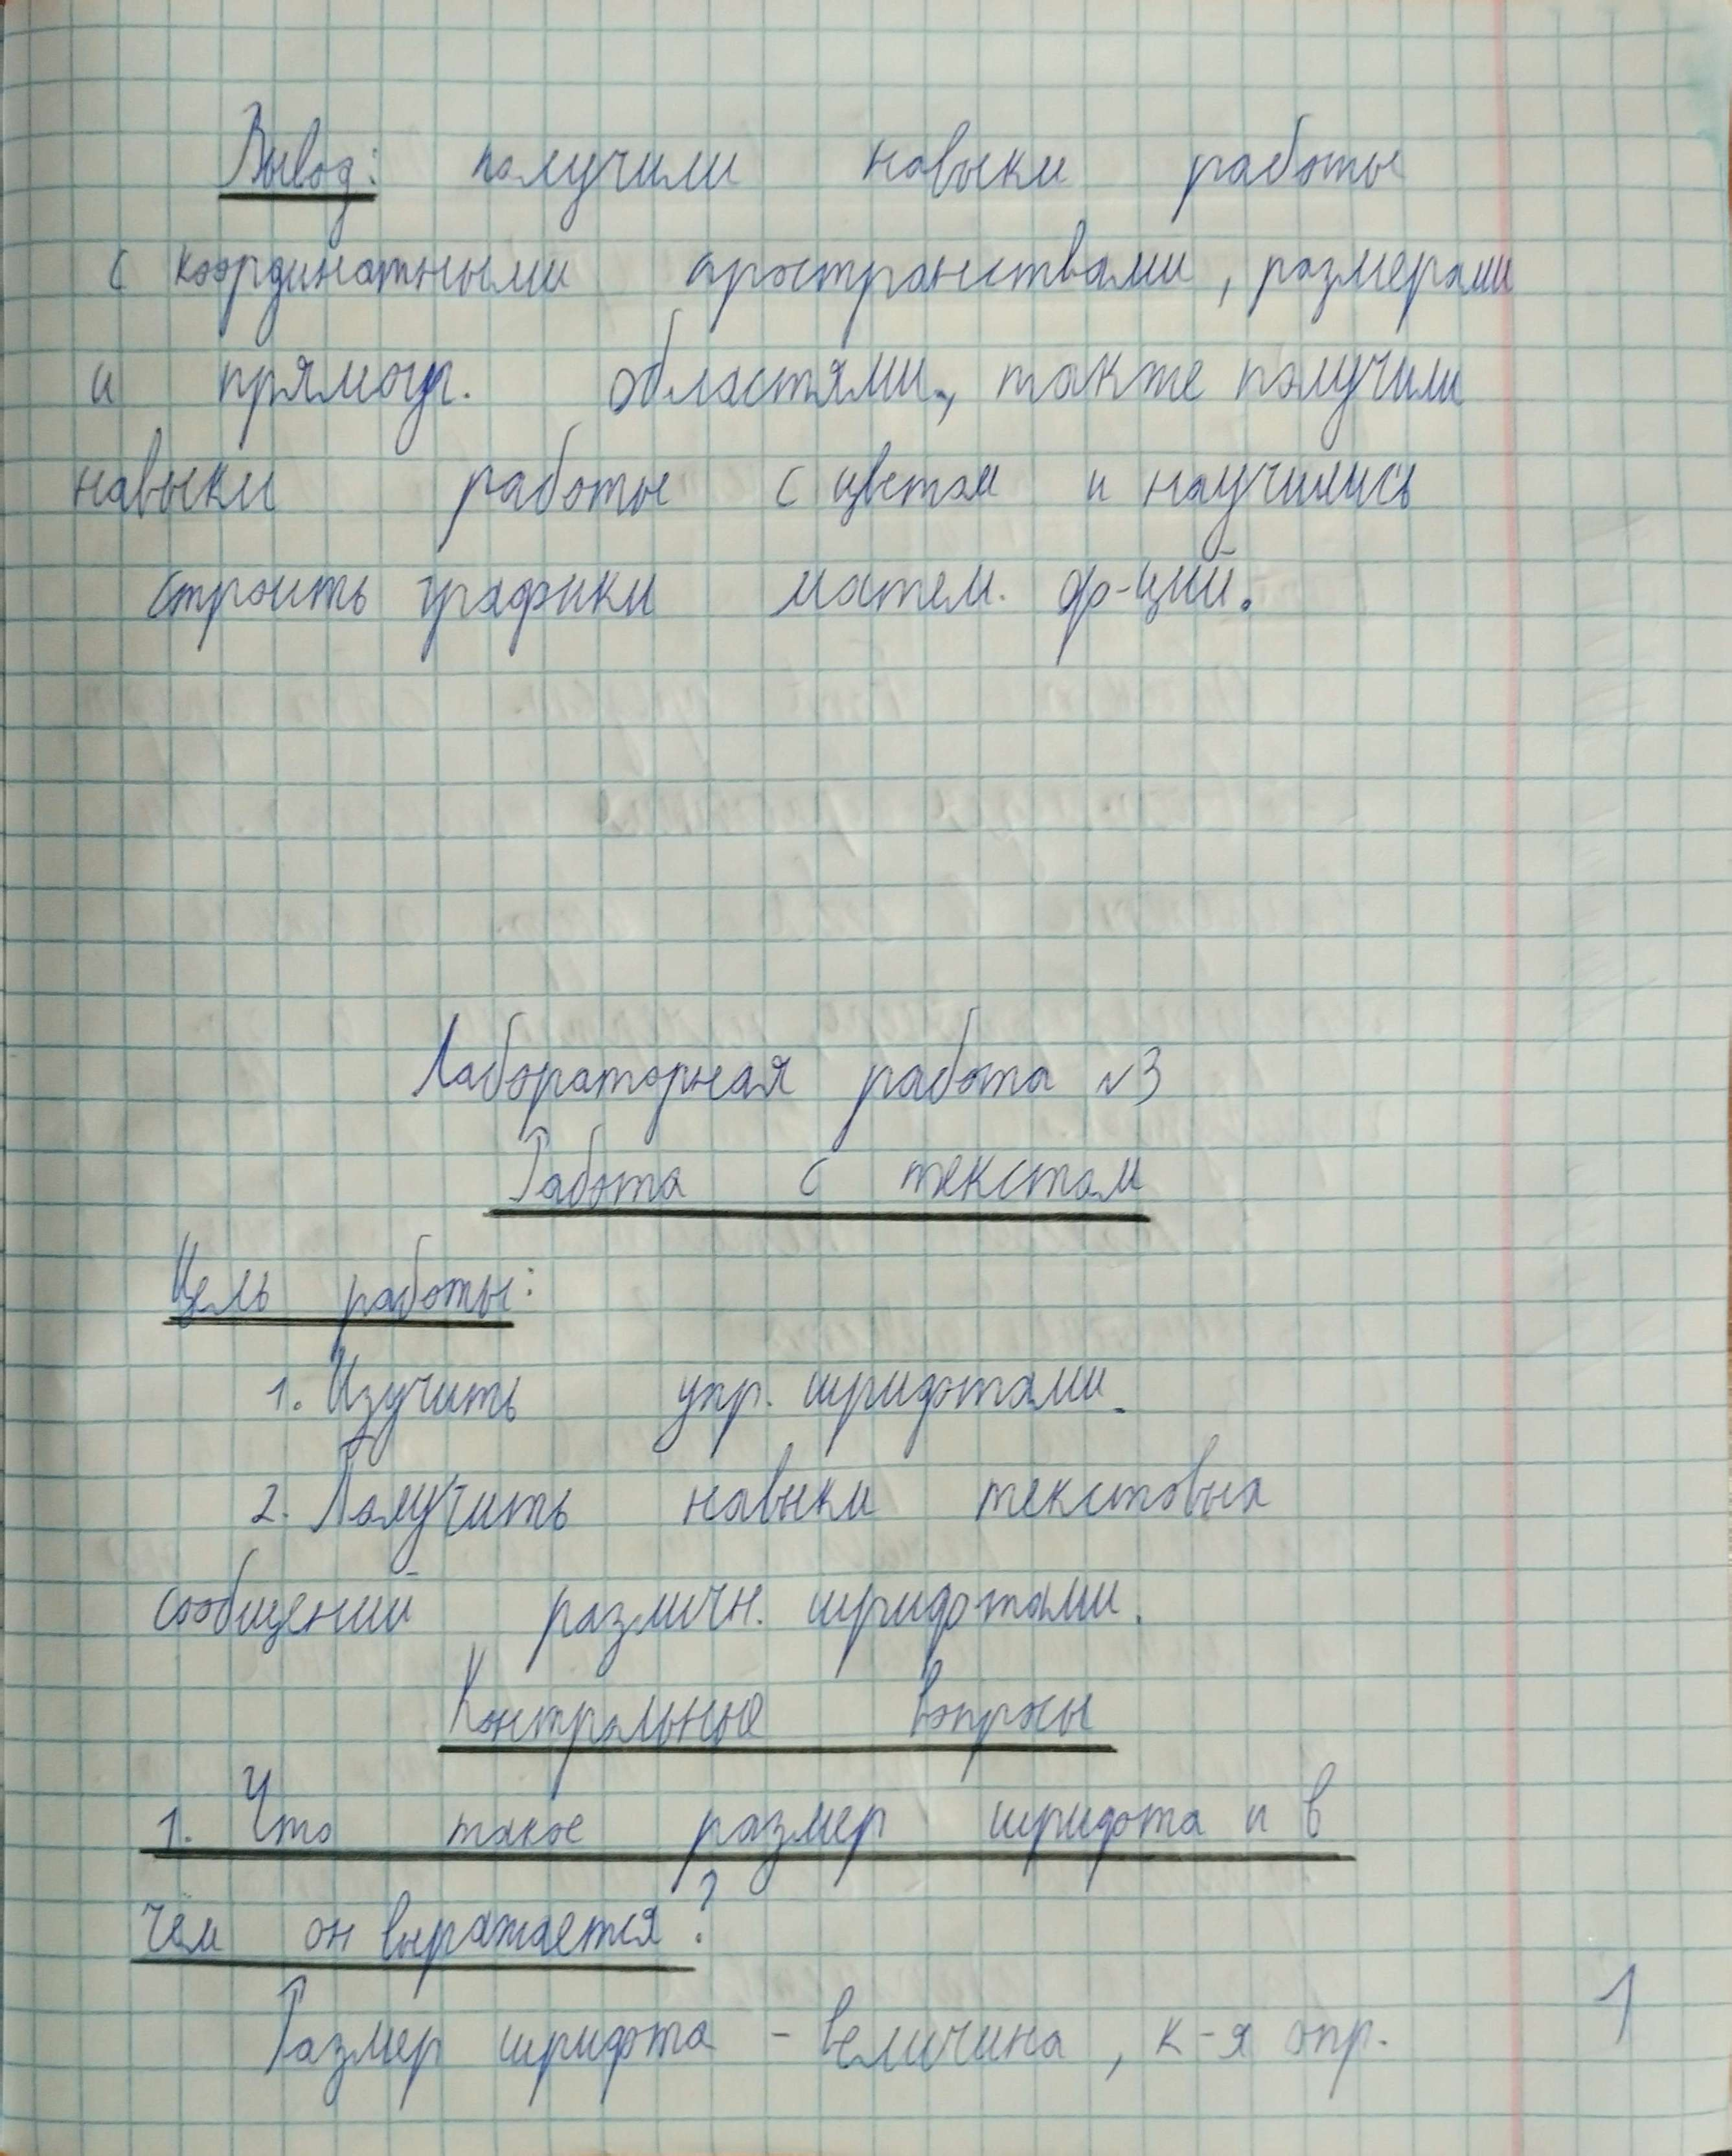 Вывод: получили навыки работы
с координатными пространствами, размерами
и прямоуг. областями, также получили
навыки работы с цветом и научились
строить графики матем. ф-ций.
Лабораторная работа №3
Работа с текстом
Цель работы:
1. Изучить упр. шрифтами.
2. Получить навыки текстовых
сообщений различн. шрифтами.
Контрольные вопросы
1. Что такое размер шрифта и в
чём он выражается?
Размер шрифта - величина, к-я опр.
1